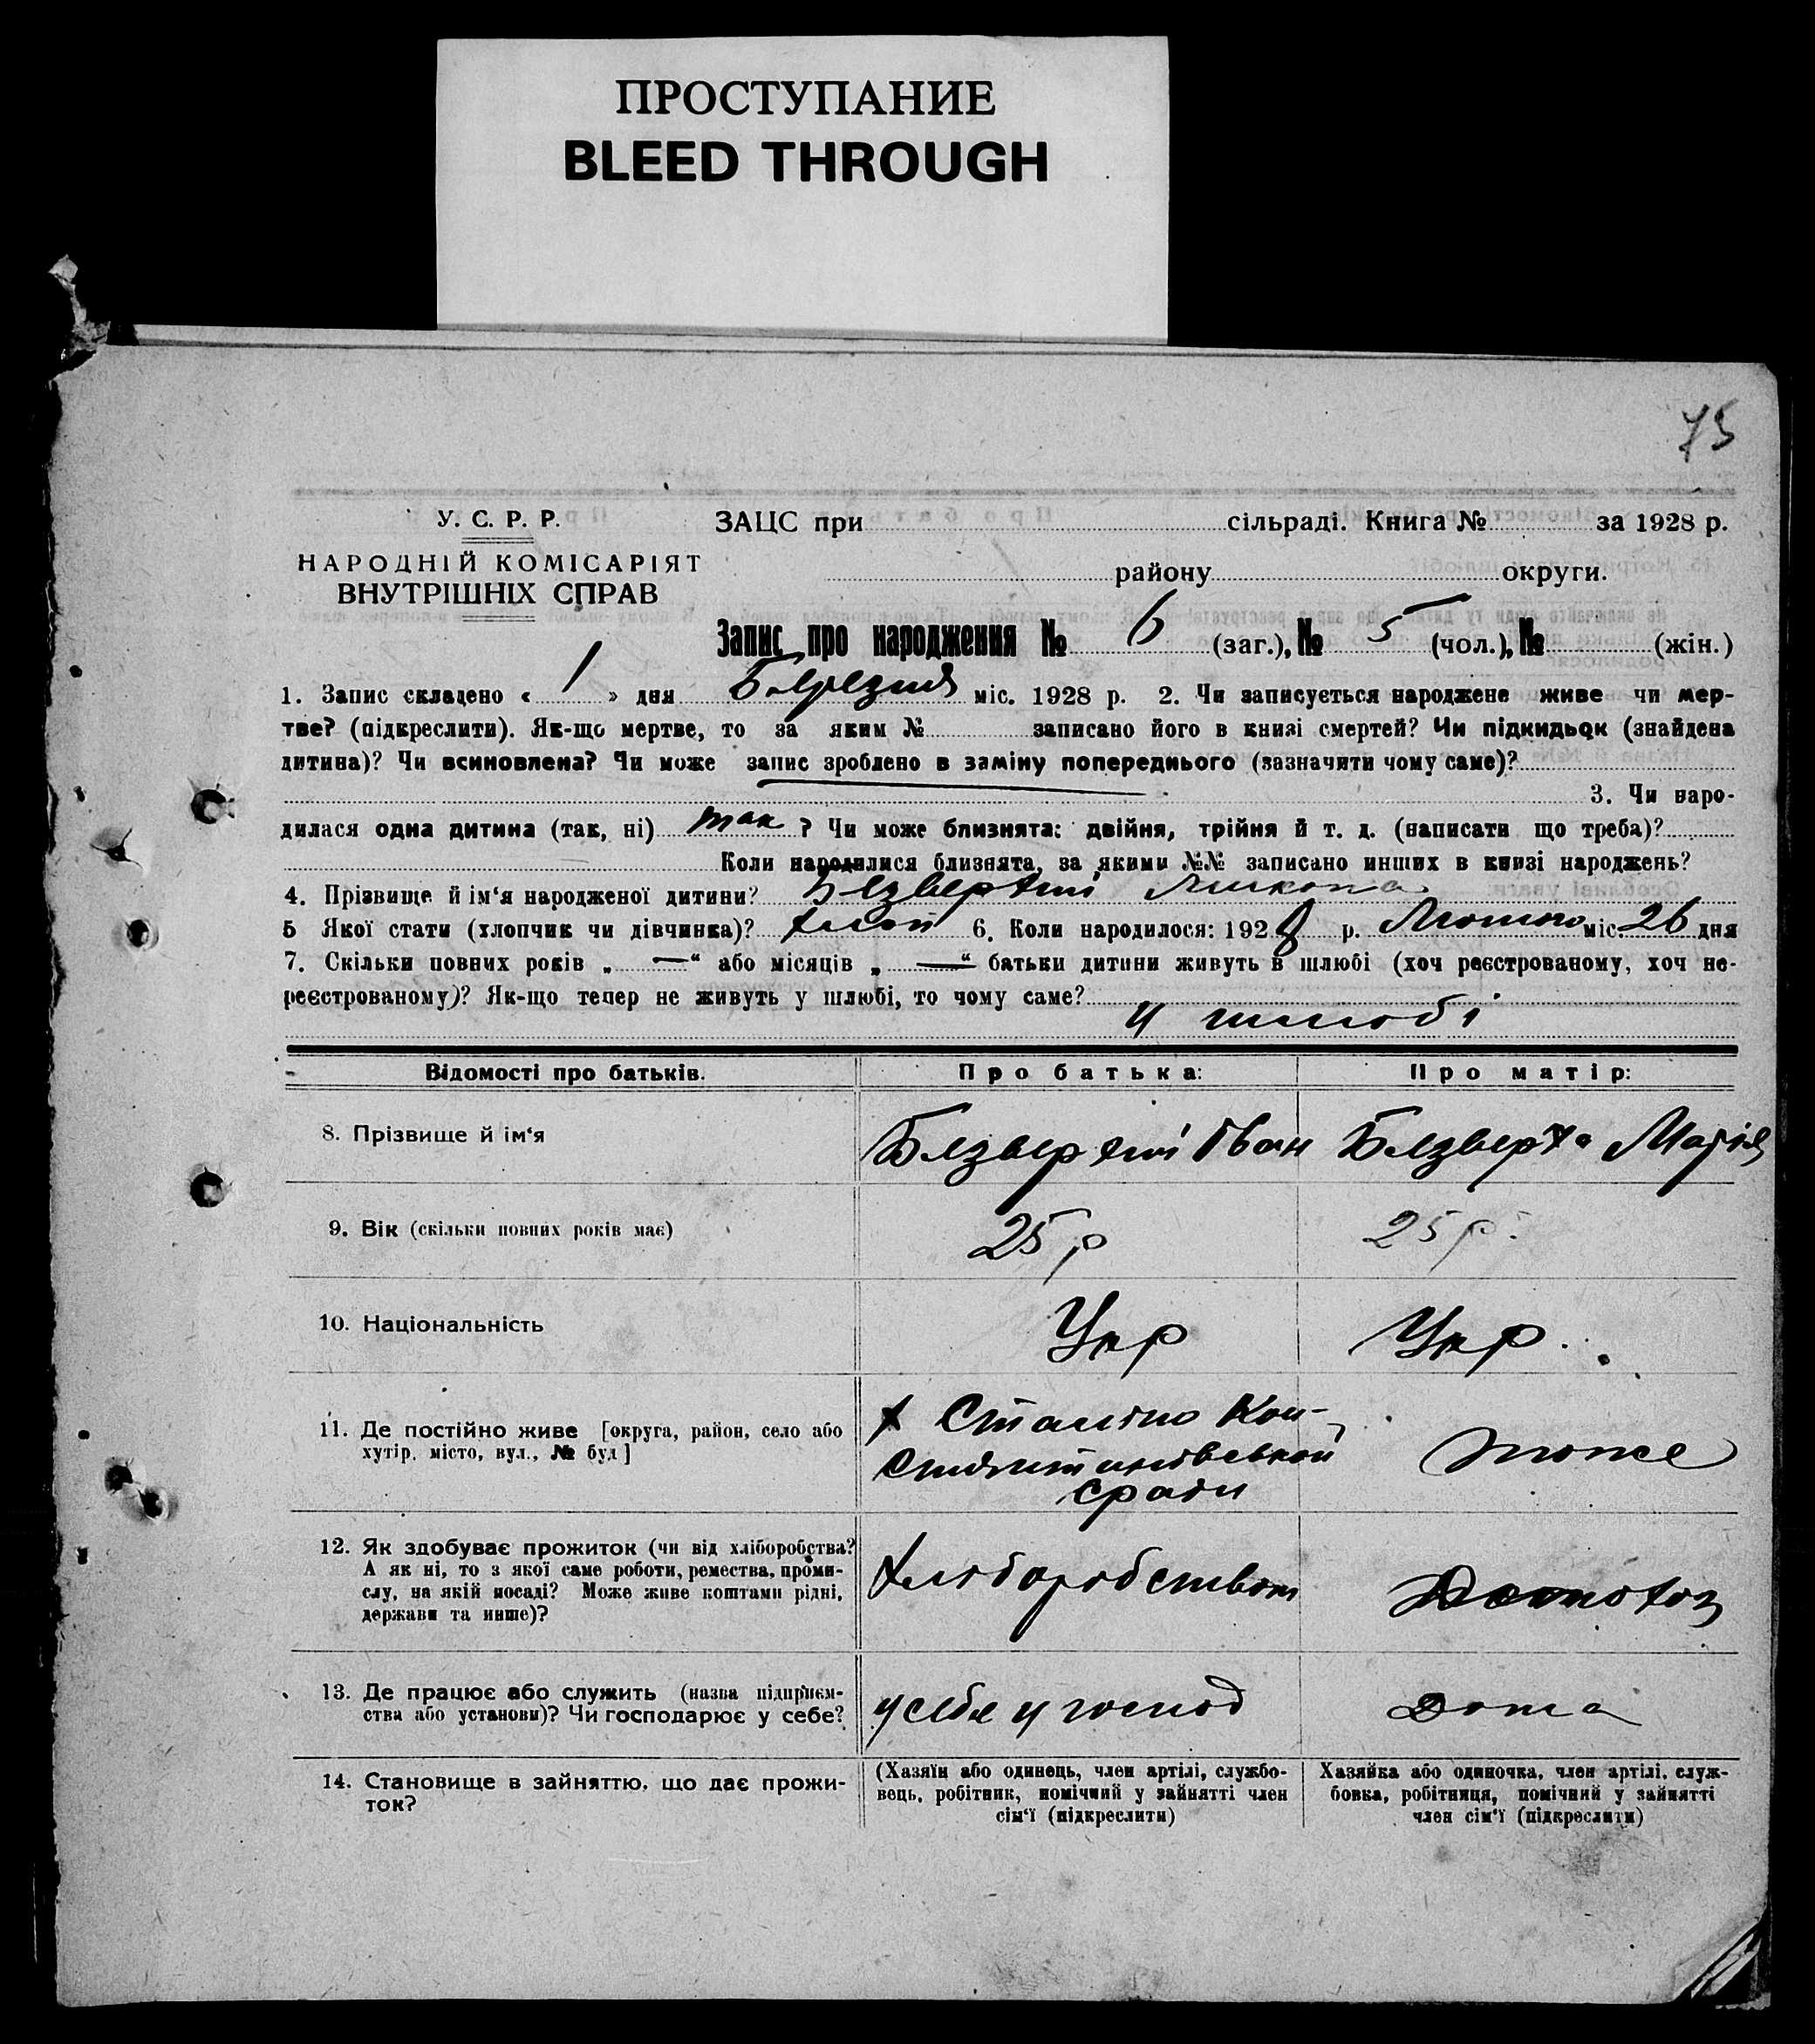 ПРОСТУПАНИЕ
BLEED THROUGH
75
У. С. Р. Р.
НАРОДНІЙ КОМІСАРІЯТ
ВНУТРІШНІХ СПРАВ
ЗАЦС при сільраді. Книга № за 1928 р.
району округи.
Запис про народження № 6 (заг.), № 5 (чол.), № (жін.)
1. Запис складено « 1 » дня Березня міс. 1928 р. 2. Чи записується народжене живе чи мер-
тве? (підкреслити). Як-що мертве, то за яким № записано його в книзі смертей? Чи підкидьок (знайдена
дитина)? Чи всиновлена? Чи може запис зроблено в заміну попереднього (зазначити чому саме)?
3. Чи наро-
дилася одна дитина (так, ні) так ? Чи може близнята: двійня, трійня й т. д. (написати що треба)?
Коли народилися близнята, за якими №№ записано инших в книзі народжень?
4. Прізвище й ім‘я народженої дитини? Безвертий
5 Якої стати (хлопчик чи дівчинка)? хлоп 6. Коли народилося: 1928 р. Лютого міс. 26 дня
7. Скільки повних років „ — “ або місяців „ — “ батьки дитини живуть в шлюбі (хоч реєстрованому, хоч не-
реєстрованому)? Як-що тепер не живуть у шлюбі, то чому саме?
у шлюбі
Відомості про батьків. Про батька: Про матір:
8. Прізвище й ім‘я Безвертий Іван Безверта Марія
9. Вік (скільки повних років має) 25 р 25 р.
10. Національність Укр Укр.
11. Де постійно живе [округа, район, село або
хутір, місто, вул., № буд]
х Сталіно Кон-
стянтинівської
сради
тоже
12. Як здобуває прожиток (чи від хліборобства?
А як ні, то з якої саме роботи, ремества, проми-
слу, на якій посаді? Може живе коштами рідні,
держави та инше)?
Хліборобством
Домохоз
13. Де працює або служить (назва підприєм-
ства або установи)? Чи господарює у себе?
у себе у господ
Дома
14. Становище в зайняттю, що дає прожи-
ток?
(Хазяїн або одинець, член артілі, службо-
вець, робітник, помічний у зайнятті член
сім‘ї (підкреслити)
Хазяйка або одиночка, член артілі, служ-
бовка, робітниця, помічний у зайнятті
член сім‘ї (підкреслити)